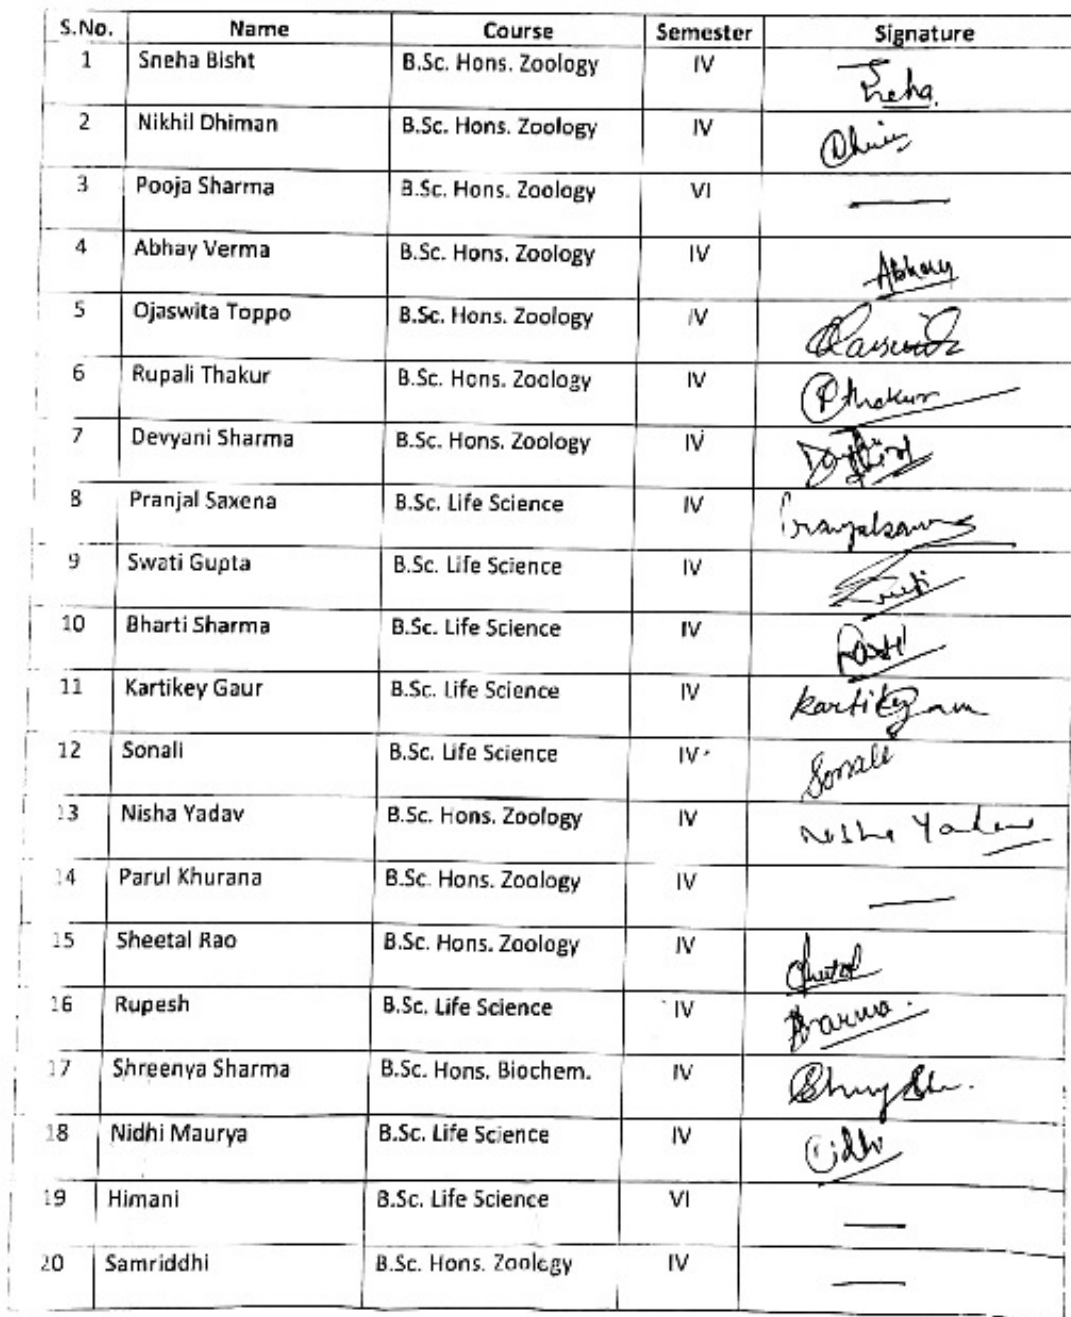 S.No. Name Course Semester Signature
1 Sneha Bisht B.Sc. Hons. Zoology IV Sneha.
2 Nikhil Dhiman B.Sc. Hons. Zoology IV
3 Pooja Sharma B.Sc. Hons. Zoology VI —
4 Abhay Verma B.Sc. Hons. Zoology IV Abhay
5 Ojaswita Toppo B.Sc. Hons. Zoology IV
6 Rupali Thakur B.Sc. Hons. Zoology IV Rthakur
7 Devyani Sharma B.Sc. Hons. Zoology IV
8 Pranjal Saxena B.Sc. Life Science IV
9 Swati Gupta B.Sc. Life Science IV
10 Bharti Sharma B.Sc. Life Science IV
11 Kartikey Gaur B.Sc. Life Science IV
12 Sonali B.Sc. Life Science IV Sonali
13 Nisha Yadav B.Sc. Hons. Zoology IV Nisha Yadav
14 Parul Khurana B.Sc. Hons. Zoology IV —
15 Sheetal Rao B.Sc. Hons. Zoology IV Sheetal
16 Rupesh B.Sc. Life Science IV
17 Shreenya Sharma B.Sc. Hons. Biochem. IV
18 Nidhi Maurya B.Sc. Life Science IV Nidhi
19 Himani B.Sc. Life Science VI —
20 Samriddhi B.Sc. Hons. Zoology IV —